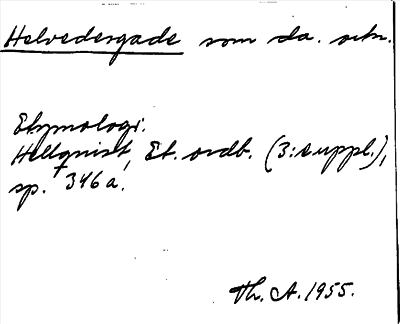 Helvedesgade som da. stn.
Etymologi.
Hellquist, Et. ordb. (3: suppl.),
sp. 346a.
Th. A. 1955.